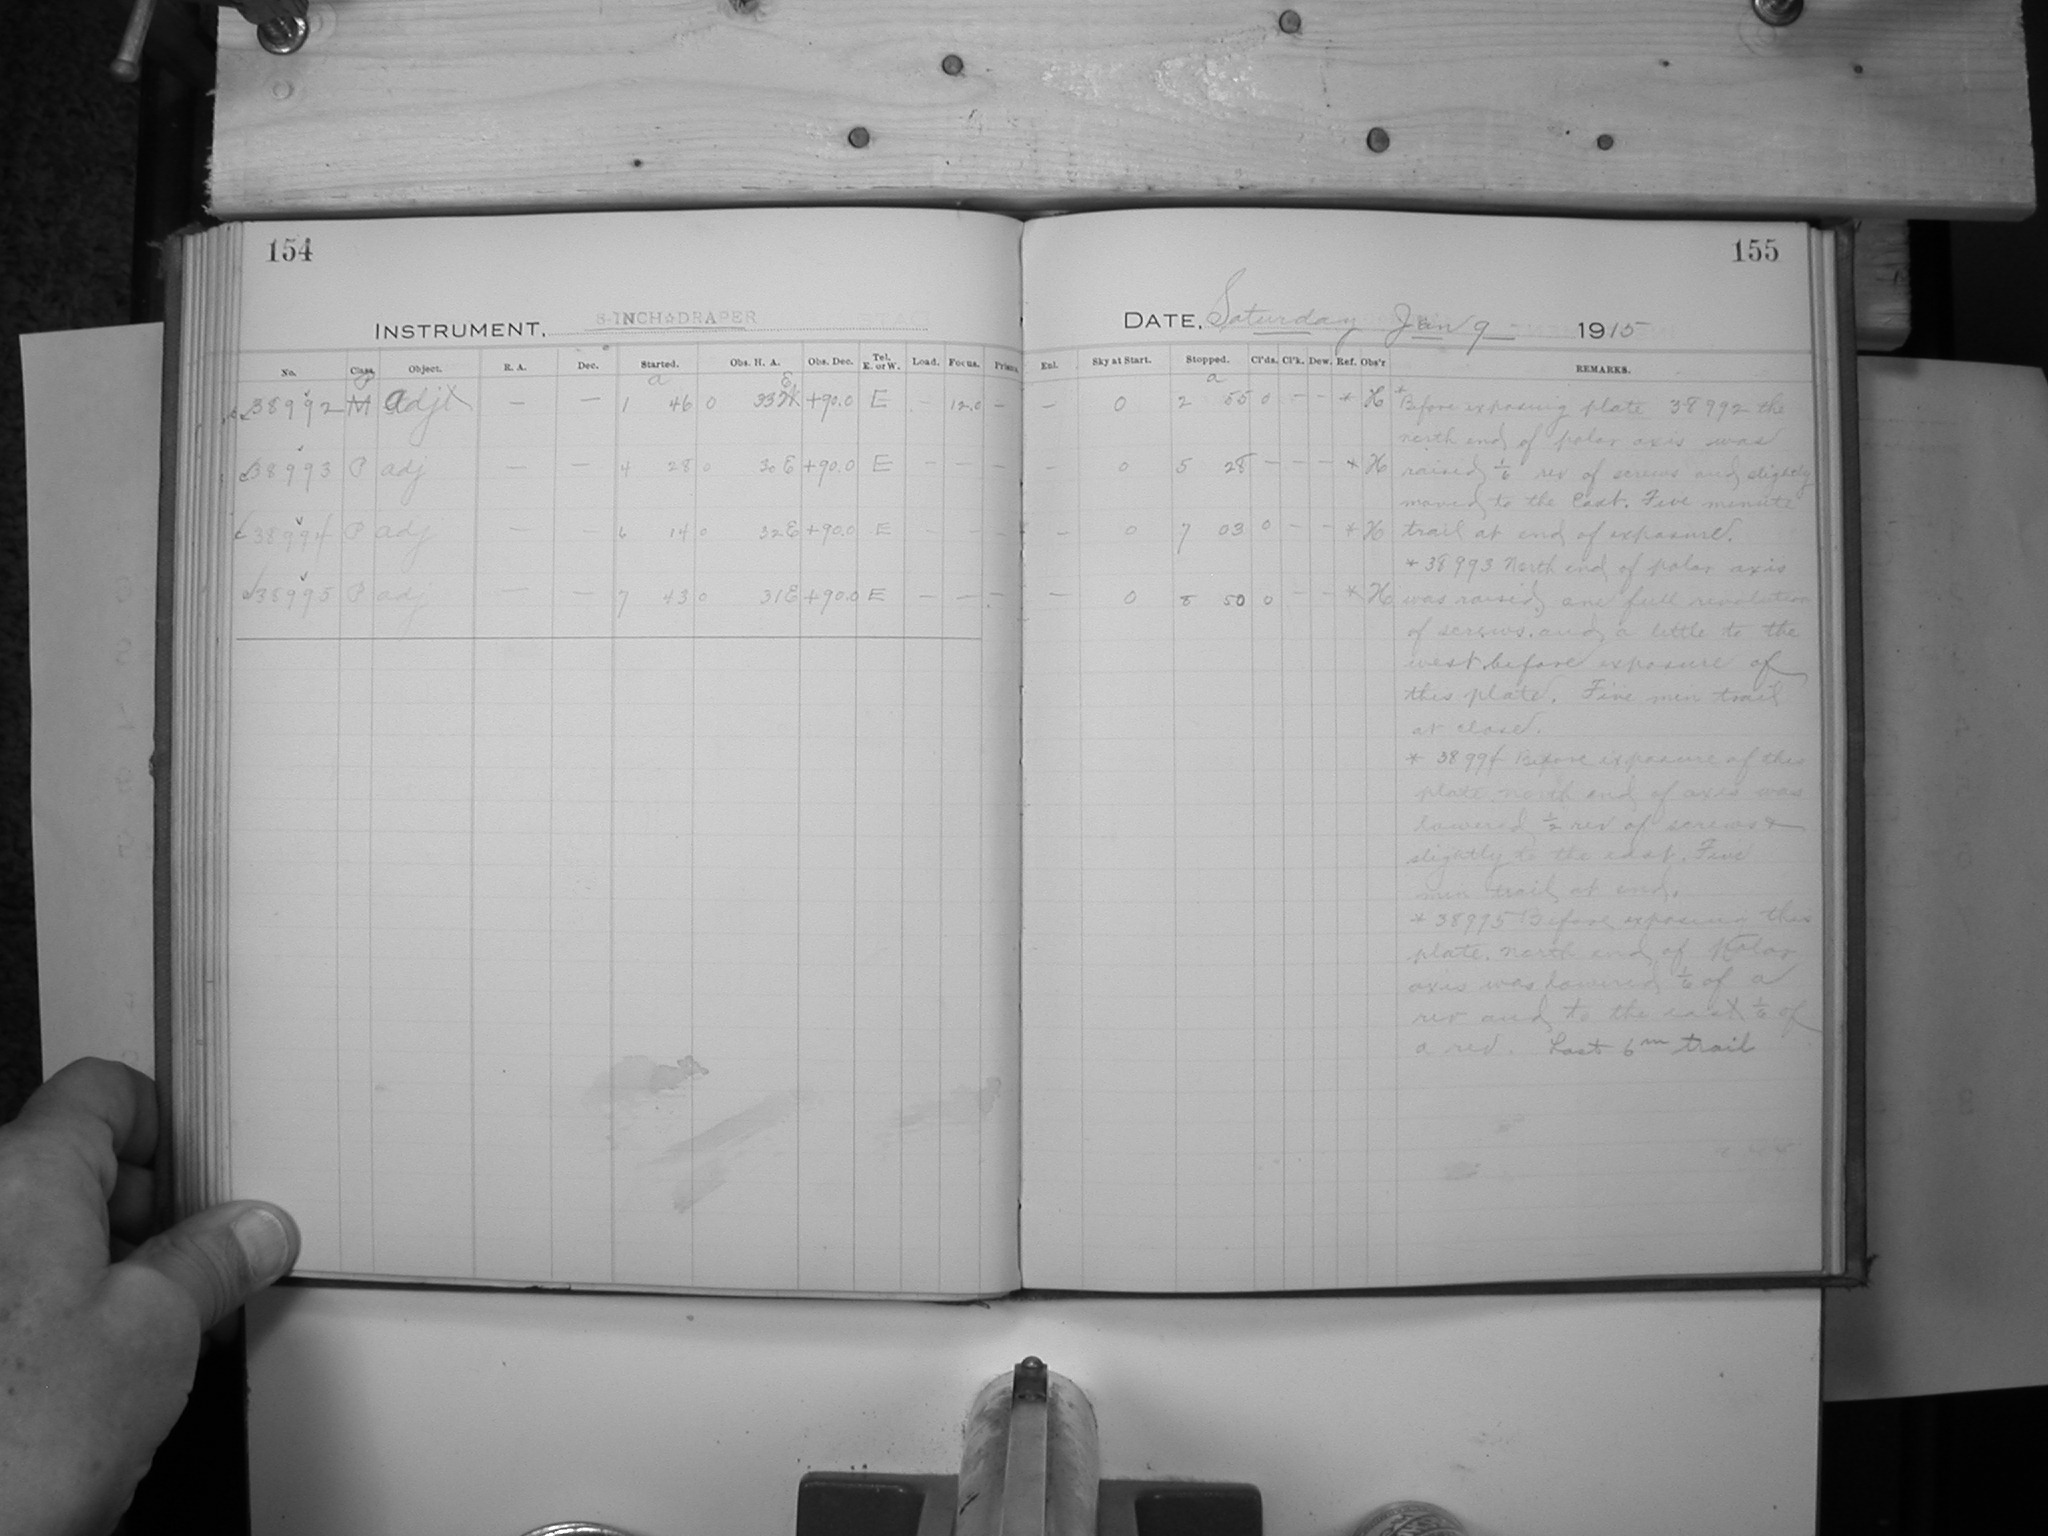 154
INSTRUMENT, 8-INCH DRAPER
No. Class. Object. R. A. Dec. Started. Obs. H. A. Obs. Dec. Tel. E. or W. Load. Focus. Prism
a
38992 P adj — — 1 46 0 33 E +90.0 E - 12.0 -
38993 P adj — — 4 28 0 30 E +90.0 E - - -
38994 P adj — — 6 14 0 32 E +90.0 E - - -
38995 P adj — — 7 43 0 31 E +90.0 E - - -
155
DATE, Saturday Jan 9 1915
Enl. Sky at Start. Stopped. Cl'ds. Cl'k. Dew. Ref. Obs'r REMARKS.
a
- 0 2 55 0 - - * H
- 0 5 28 - - - * H
- 0 7 03 0 - - * H
- 0 8 50 0 - - * H
* Before exposing plate 38992 the
north end of polar axis was
raised 1/6 rev of screws and slightly
moved to the East. Five minute
trail at end of exposure.
* 38993 North end of polar axis
was raised one full revolution
of screws and a little to the
west before exposure of
this plate. Five min trail
at close.
* 38994 Before exposure of this
plate north end of axis was
lowered 1/2 rev of screws &
slightly to the east. Five
min trail at end.
* 38995 Before exposing this
plate north end of Polar
axis was lowered 1/6 of a
rev and to the east 1/6 of
a rev. Last 6m trail